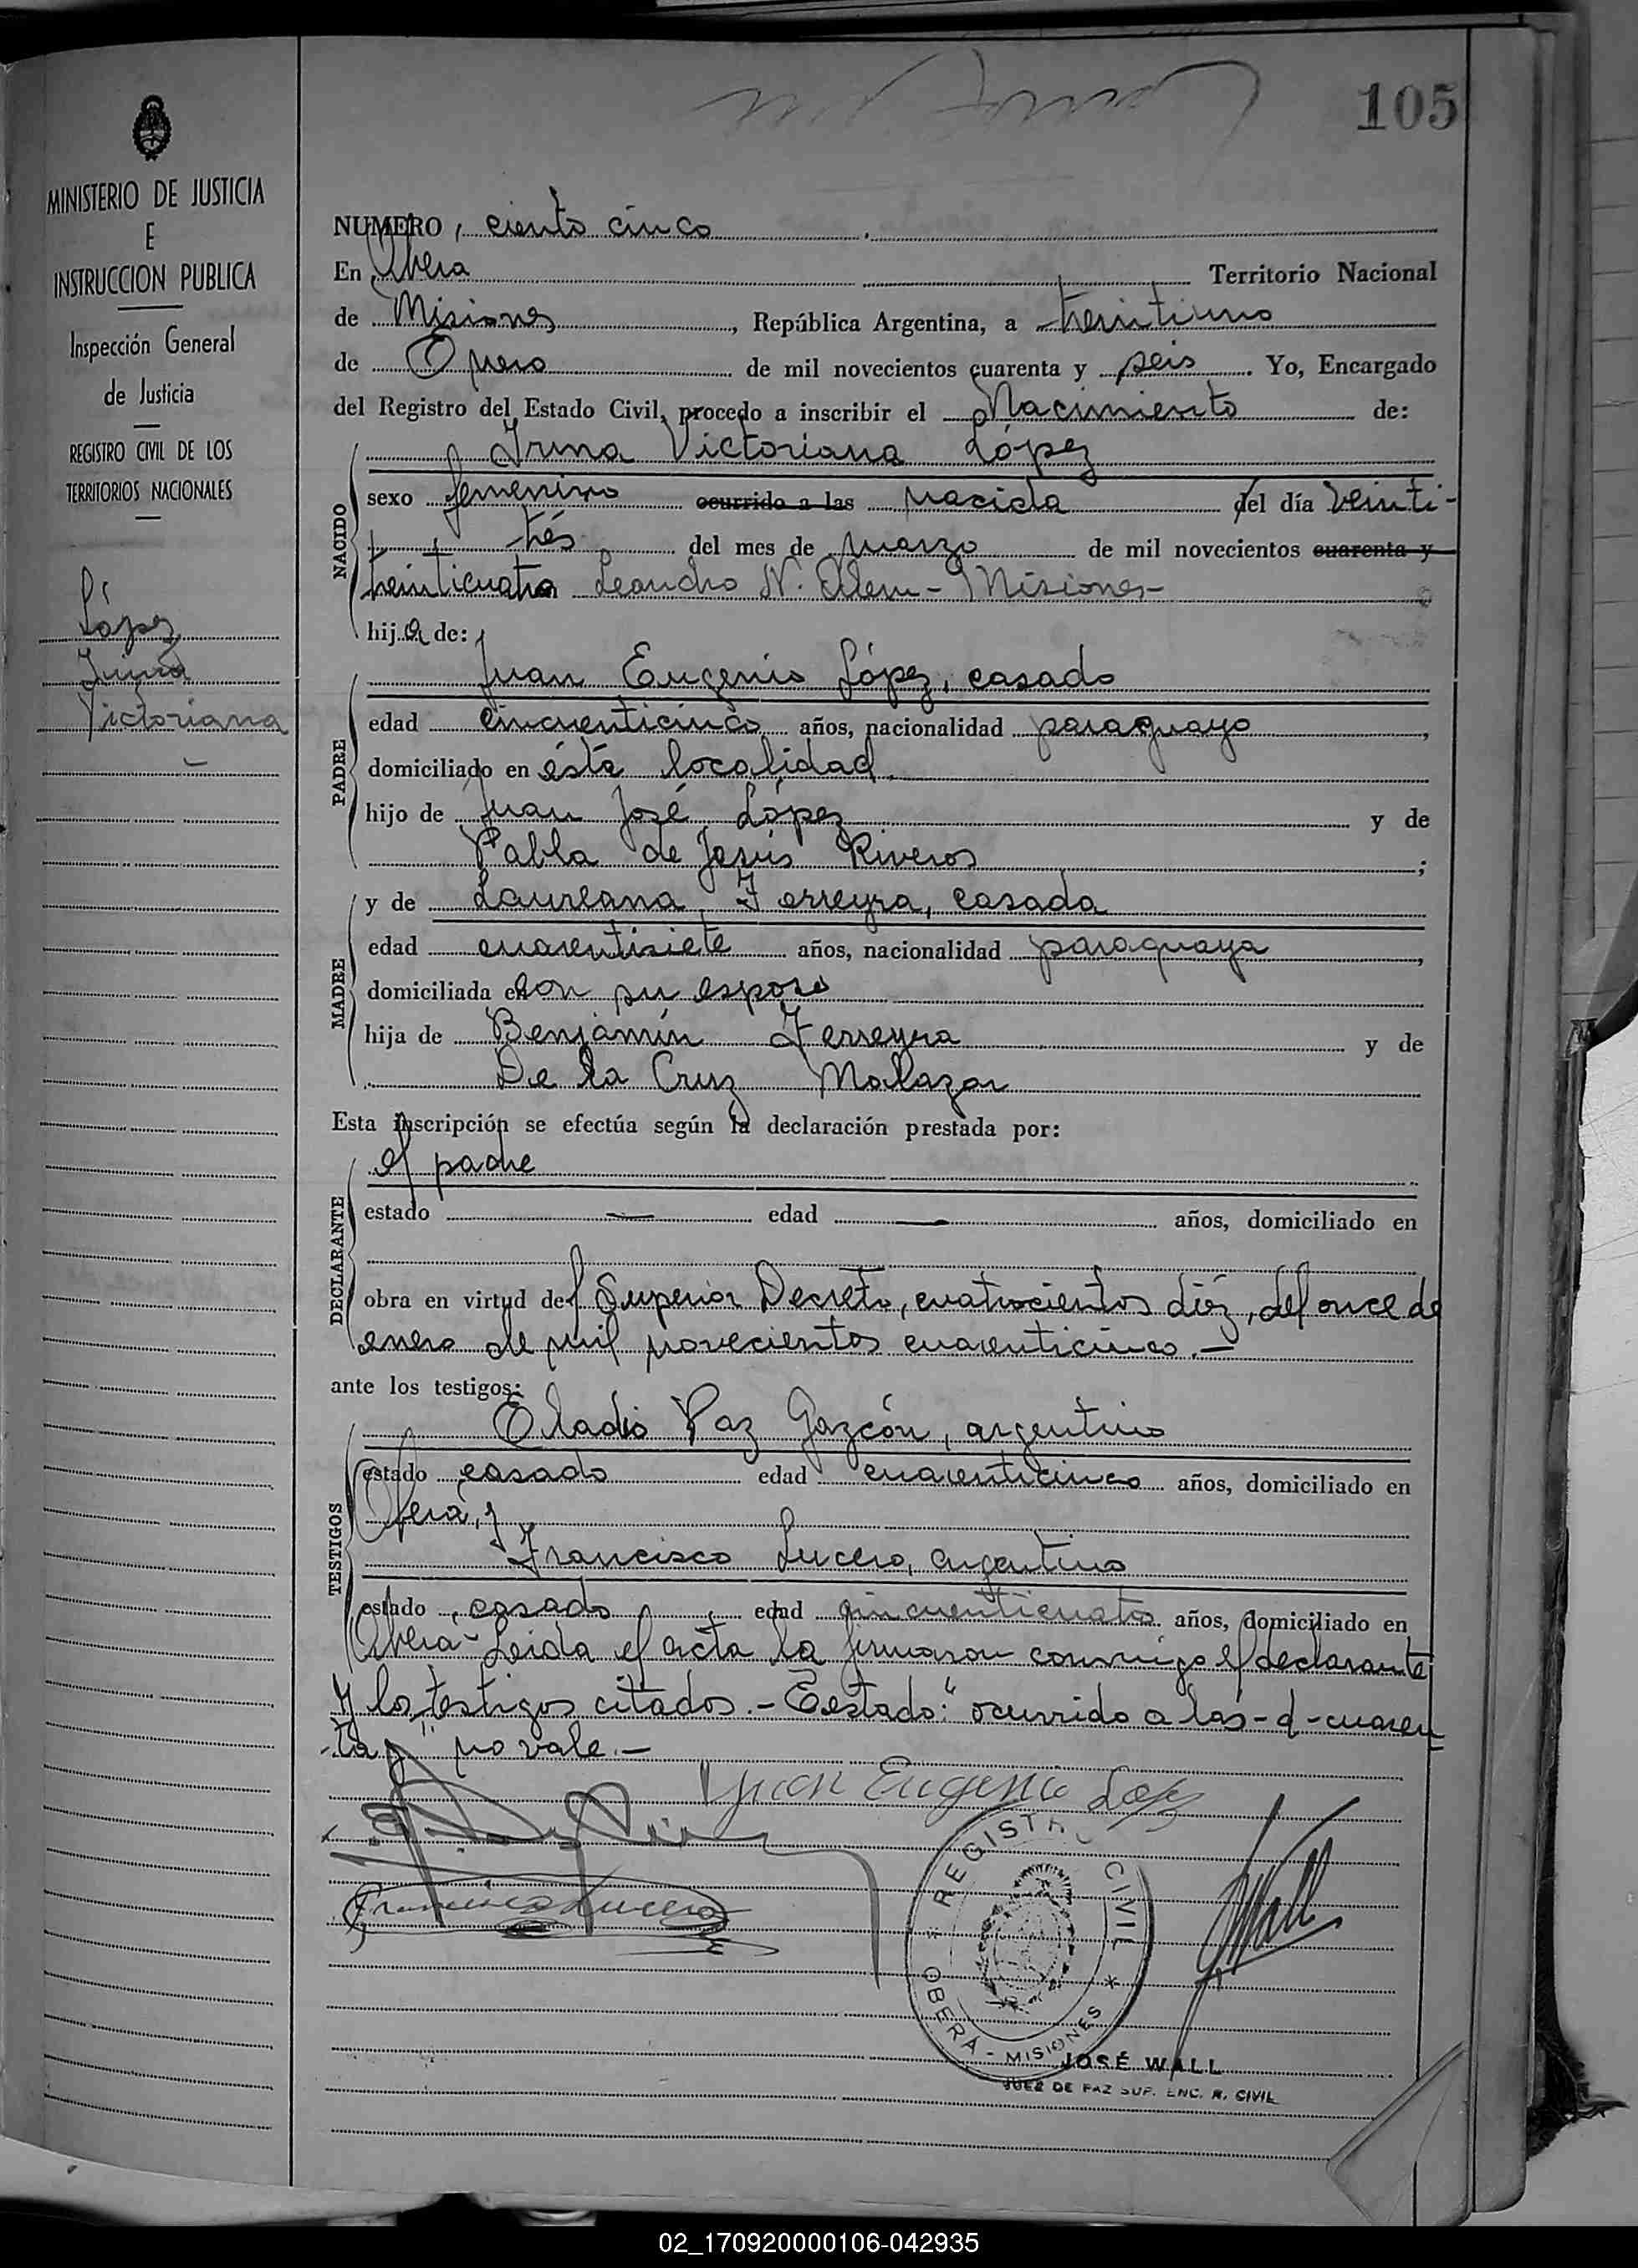 105
MINISTERIO DE JUSTICIA
E
INSTRUCCION PUBLICA
Inspección General
de Justicia
REGISTRO CIVIL DE LOS
TERRITORIOS NACIONALES
López
Irina
Victoriana
NUMERO, ciento cinco
En Obera Territorio Nacional
de Misiones, República Argentina, a treintiuno
de Enero de mil novecientos cuarenta y seis. Yo, Encargado
del Registro del Estado Civil, procedo a inscribir el Nacimiento de:
NACIDO
Irina Victoriana López
sexo femenino ocurrido a las nacida del día veinti-
trés del mes de marzo de mil novecientos cuarenta y
treinticuatro Leandro N. Alem - Misiones-
hija de:
PADRE
Juan Eugenio López, casado
edad cincuenticinco años, nacionalidad paraguayo,
domiciliado en ésta localidad.
hijo de Juan José López y de
Pabla de Jesús Riveros;
MADRE
y de Laureana Ferreyra, casada
edad cuarentisiete años, nacionalidad paraguaya,
domiciliada en con su esposo
hija de Benjamín Ferreyra y de
De la Cruz Malazar
Esta inscripción se efectúa según la declaración prestada por:
DECLARANTE
el padre
estado — edad — años, domiciliado en
obra en virtud del Superior Decreto, cuatrocientos diéz, del once de
enero de mil novecientos cuarenticinco.-
ante los testigos:
TESTIGOS
Eladio Paz Gazcón, argentino
estado casado edad cuarenticinco años, domiciliado en
Obera, y
Francisco Lucero, argentino
estado, casado edad cincuenticuatro años, domiciliado en
Obera- Leida el acta la firmaron conmigo el declarante
y los testigos citados.- Testado: "ocurrido a las-d-cuaren
-ta y" no vale.-
Juan Eugenio Lopez
Francisco Lucero
REGISTRO CIVIL
OBERA - MISIONES
JOSÉ WALL
JUEZ DE PAZ SUP. ENC. R. CIVIL
02_170920000106-042935